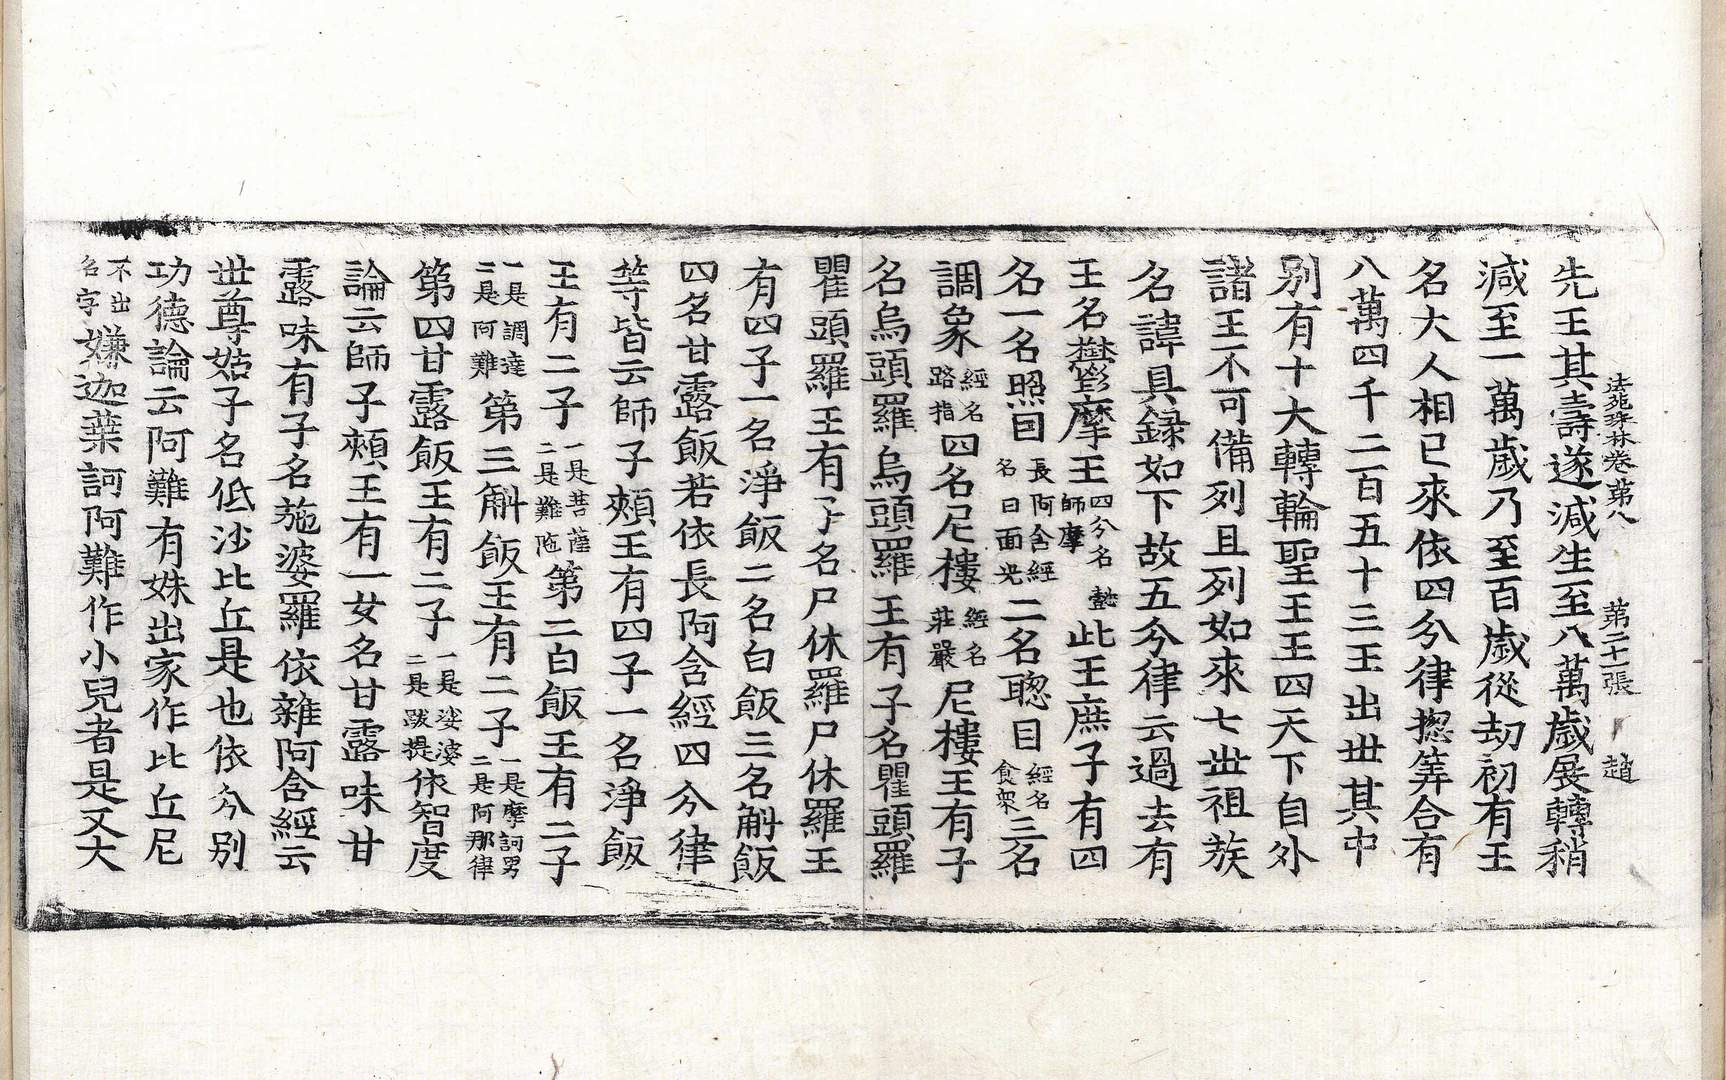 法苑珠林卷第八　第二十一張　趙
先王其壽遂減生至八萬歲展轉稍
減至一萬歲乃至百歲從劫初有王
名大人相已來依四分律揔筭合有
八萬四千二百五十三王出世其中
別有十大轉輪聖王王四天下自外
諸王不可備列且列如來七世祖族
名諱具録如下故五分律云過去有
王名欝摩王四分名懿師摩此王庶子有四
名一名照目長阿含經名曰面光二名聦目經名食衆三名
調象經名路指四名尼樓經名莊嚴尼樓王有子
名烏頭羅烏頭羅王有子名瞿頭羅
瞿頭羅王有子名尸休羅尸休羅王
有四子一名淨飯二名白飯三名斛飯
四名甘露飯若依長阿含經四分律
等皆云師子頰王有四子一名淨飯
王有二子一是菩薩二是難陁第二白飯王有二子
一是調達二是阿難第三斛飯王有二子一是摩訶男二是阿那律
第四甘露飯王有二子一是娑婆二是跋提依智度
論云師子頰王有一女名甘露味甘
露味有子名施婆羅依雜阿含經云
世尊姑子名低沙比丘是也依分別
功德論云阿難有姝出家作比丘尼
不出名字嫌迦葉訶阿難作小兒者是又大